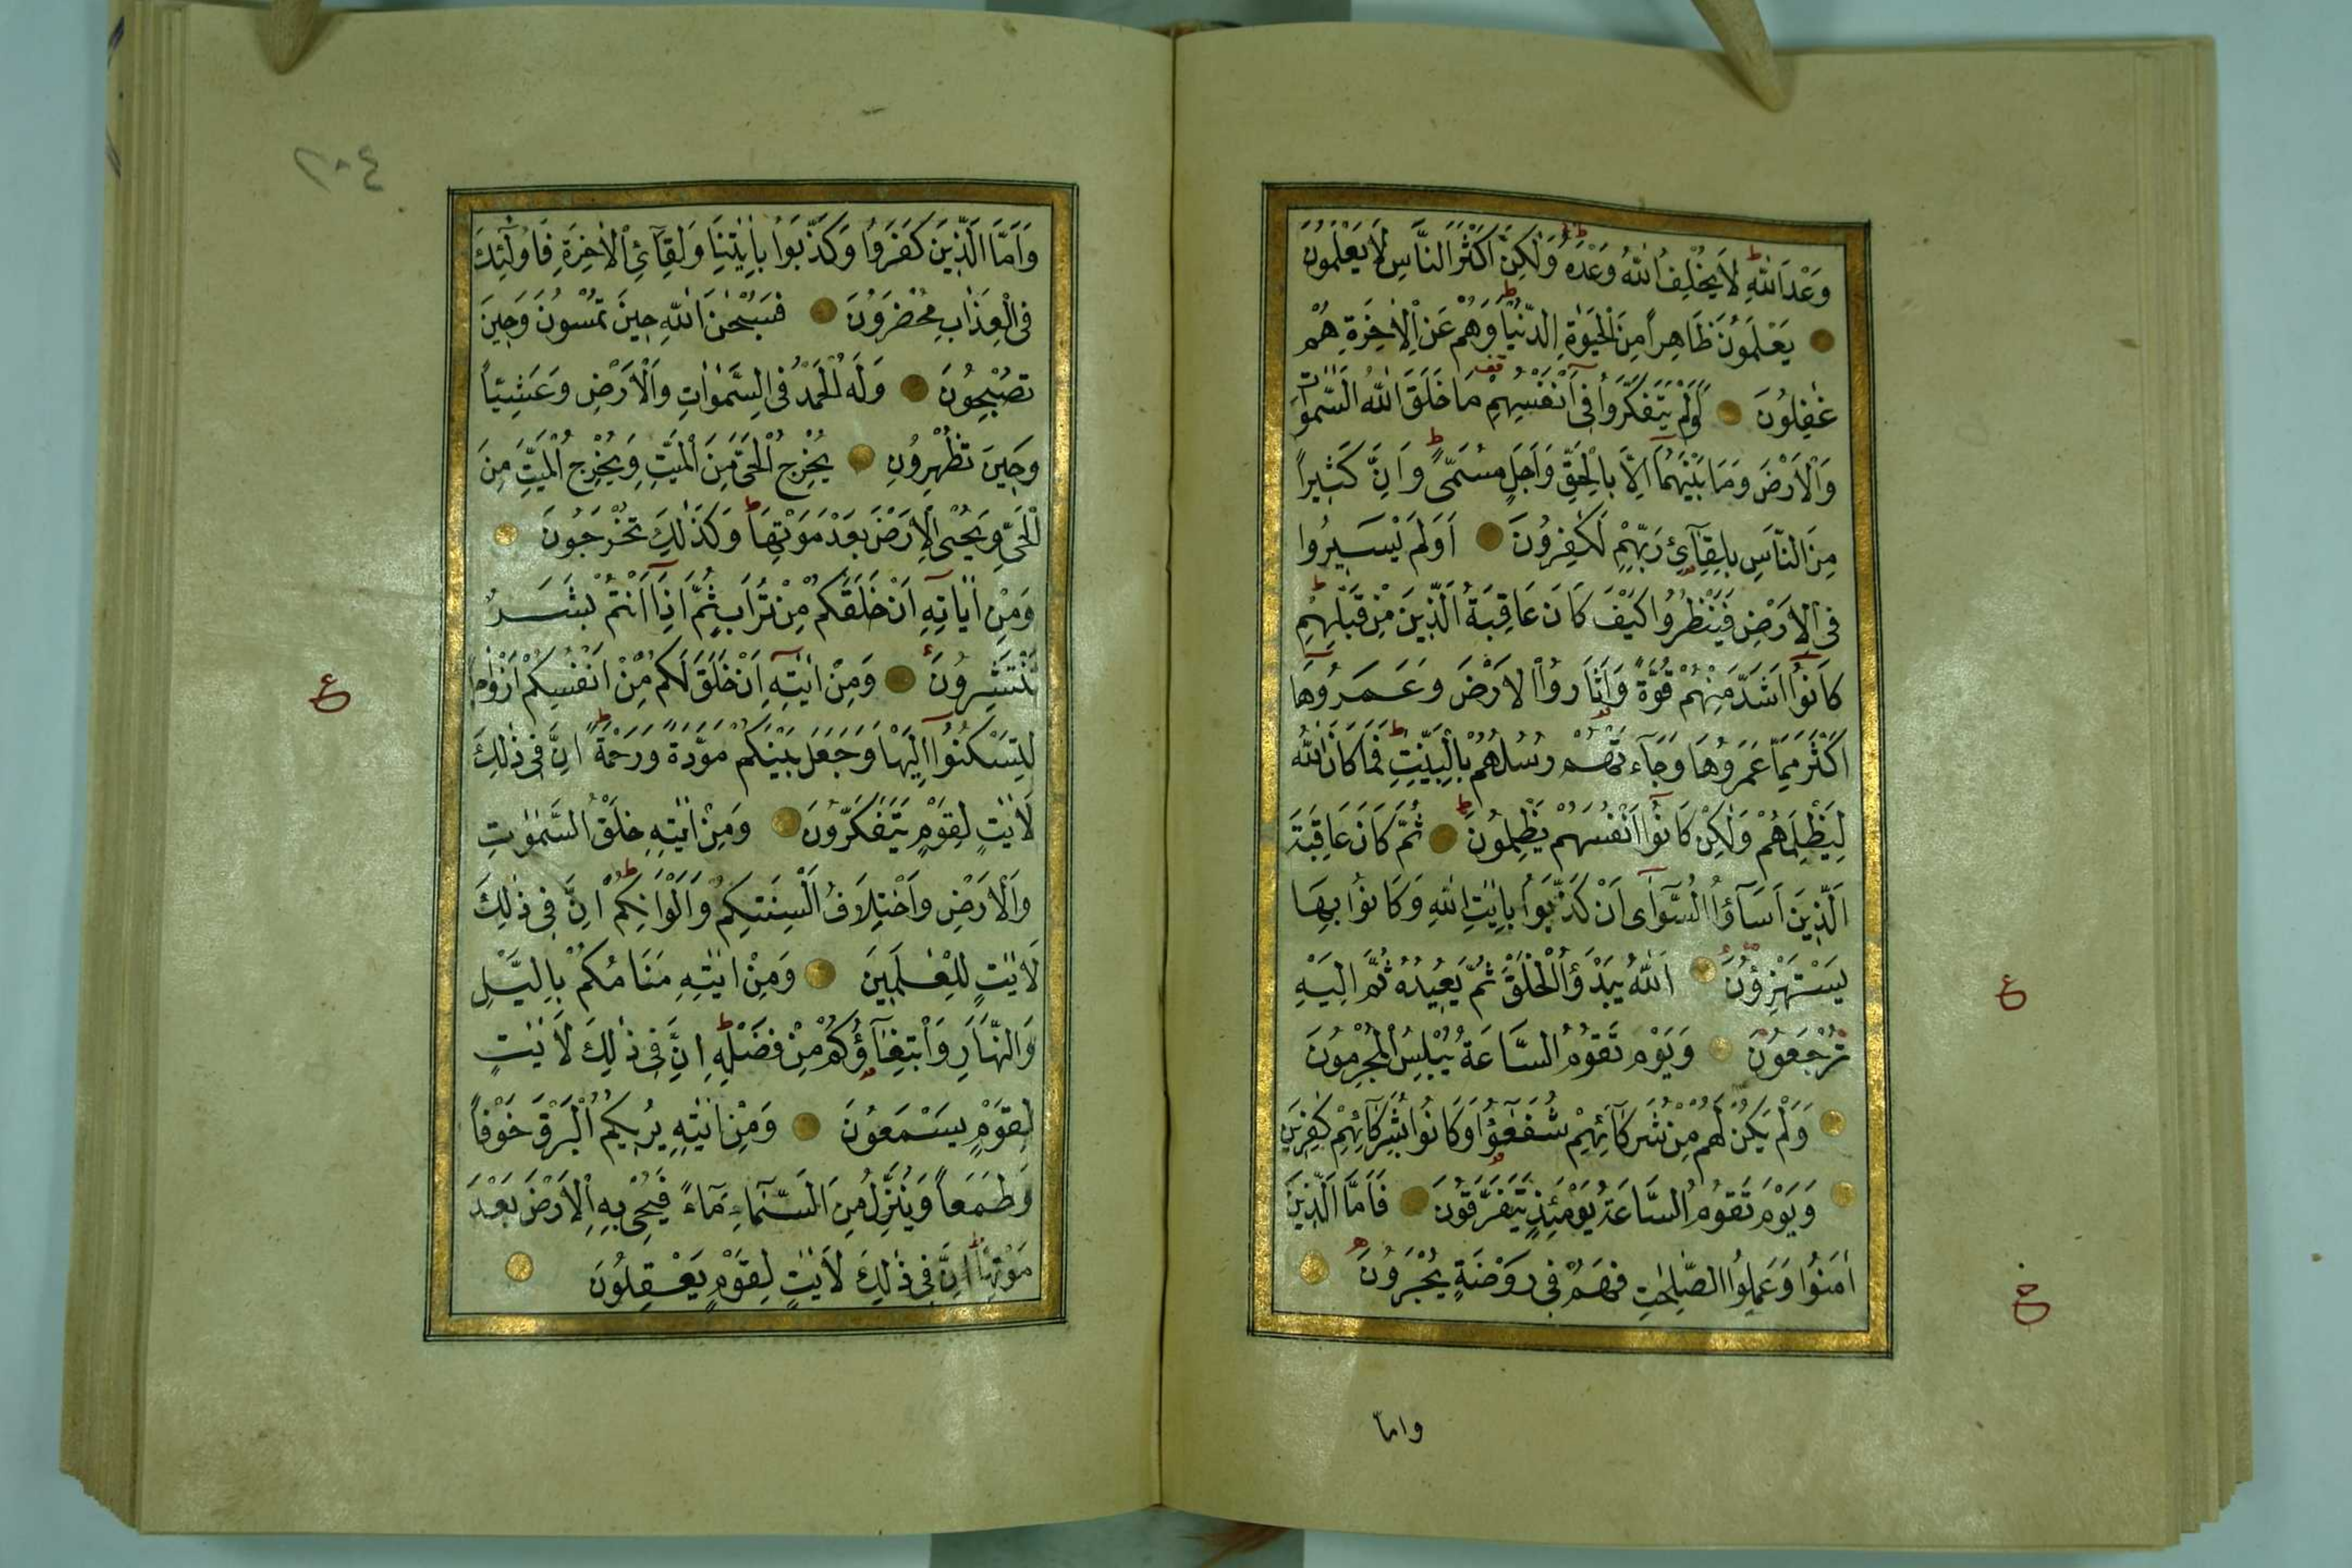 وَعْدَ اللّٰهِ لَا يُخْلِفُ اللّٰهُ وَعْدَهُ وَلٰكِنَّ اَكْثَرَ النَّاسِ لَا يَعْلَمُونَ
يَعْلَمُونَ ظَاهِرًا مِنَ الْحَيٰوةِ الدُّنْيَا وَهُمْ عَنِ الْاٰخِرَةِ هُمْ
غٰفِلُونَ اَوَلَمْ يَتَفَكَّرُوا فِى اَنْفُسِهِمْ مَا خَلَقَ اللّٰهُ السَّمٰوَاتِ
وَالْاَرْضَ وَمَا بَيْنَهُمَا اِلَّا بِالْحَقِّ وَاَجَلٍ مُسَمًّى وَاِنَّ كَثِيرًا
مِنَ النَّاسِ بِلِقَآئِ رَبِّهِمْ لَكٰفِرُونَ اَوَلَمْ يَسِيرُوا
فِى الْاَرْضِ فَيَنْظُرُوا كَيْفَ كَانَ عَاقِبَةُ الَّذِينَ مِنْ قَبْلِهِمْ
كَانُوا اَشَدَّ مِنْهُمْ قُوَّةً وَاَثَارُوا الْاَرْضَ وَعَمَرُوهَا
اَكْثَرَ مِمَّا عَمَرُوهَا وَجَآءَتْهُمْ رُسُلُهُمْ بِالْبَيِّنٰتِ فَمَا كَانَ اللّٰهُ
لِيَظْلِمَهُمْ وَلٰكِنْ كَانُوا اَنْفُسَهُمْ يَظْلِمُونَ ثُمَّ كَانَ عَاقِبَةَ
الَّذِينَ اَسَآؤُا السُّوٓاٰى اَنْ كَذَّبُوا بِاٰيٰتِ اللّٰهِ وَكَانُوا بِهَا
يَسْتَهْزِؤُنَ اَللّٰهُ يَبْدَؤُا الْخَلْقَ ثُمَّ يُعِيدُهُ ثُمَّ اِلَيْهِ
ع
تُرْجَعُونَ وَيَوْمَ تَقُومُ السَّاعَةُ يُبْلِسُ الْمُجْرِمُونَ
وَلَمْ يَكُنْ لَهُمْ مِنْ شُرَكَآئِهِمْ شُفَعٰٓؤُا وَكَانُوا بِشُرَكَآئِهِمْ كٰفِرِينَ
وَيَوْمَ تَقُومُ السَّاعَةُ يَوْمَئِذٍ يَتَفَرَّقُونَ فَاَمَّا الَّذِينَ
اٰمَنُوا وَعَمِلُوا الصّٰلِحٰتِ فَهُمْ فِى رَوْضَةٍ يُحْبَرُونَ
واما
٢٠٤
وَاَمَّا الَّذِينَ كَفَرُوا وَكَذَّبُوا بِاٰيٰتِنَا وَلِقَآئِ الْاٰخِرَةِ فَاُولٰٓئِكَ
فِى الْعَذَابِ مُحْضَرُونَ فَسُبْحٰنَ اللّٰهِ حِينَ تُمْسُونَ وَحِينَ
تُصْبِحُونَ وَلَهُ الْحَمْدُ فِى السَّمٰوَاتِ وَالْاَرْضِ وَعَشِيًّا
وَحِينَ تُظْهِرُونَ يُخْرِجُ الْحَىَّ مِنَ الْمَيِّتِ وَيُخْرِجُ الْمَيِّتَ مِنَ
الْحَىِّ وَيُحْىِ الْاَرْضَ بَعْدَ مَوْتِهَا وَكَذٰلِكَ تُخْرَجُونَ
وَمِنْ اٰيَاتِهِ اَنْ خَلَقَكُمْ مِنْ تُرَابٍ ثُمَّ اِذَا اَنْتُمْ بَشَرٌ
تَنْتَشِرُونَ وَمِنْ اٰيٰتِهِ اَنْ خَلَقَ لَكُمْ مِنْ اَنْفُسِكُمْ اَزْوَاجًا
ع
لِتَسْكُنُوا اِلَيْهَا وَجَعَلَ بَيْنَكُمْ مَوَدَّةً وَرَحْمَةً اِنَّ فِى ذٰلِكَ
لَاٰيٰتٍ لِقَوْمٍ يَتَفَكَّرُونَ وَمِنْ اٰيٰتِهِ خَلْقُ السَّمٰوٰتِ
وَالْاَرْضِ وَاخْتِلَافُ اَلْسِنَتِكُمْ وَاَلْوَانِكُمْ اِنَّ فِى ذٰلِكَ
لَاٰيٰتٍ لِلْعٰلَمِينَ وَمِنْ اٰيٰتِهِ مَنَامُكُمْ بِالَّيْلِ
وَالنَّهَارِ وَابْتِغَآؤُكُمْ مِنْ فَضْلِهِ اِنَّ فِى ذٰلِكَ لَاٰيٰتٍ
لِقَوْمٍ يَسْمَعُونَ وَمِنْ اٰيٰتِهِ يُرِيكُمُ الْبَرْقَ خَوْفًا
وَطَمَعًا وَيُنَزِّلُ مِنَ السَّمَآءِ مَآءً فَيُحْىِ بِهِ الْاَرْضَ بَعْدَ
مَوْتِهَا اِنَّ فِى ذٰلِكَ لَاٰيٰتٍ لِقَوْمٍ يَعْقِلُونَ